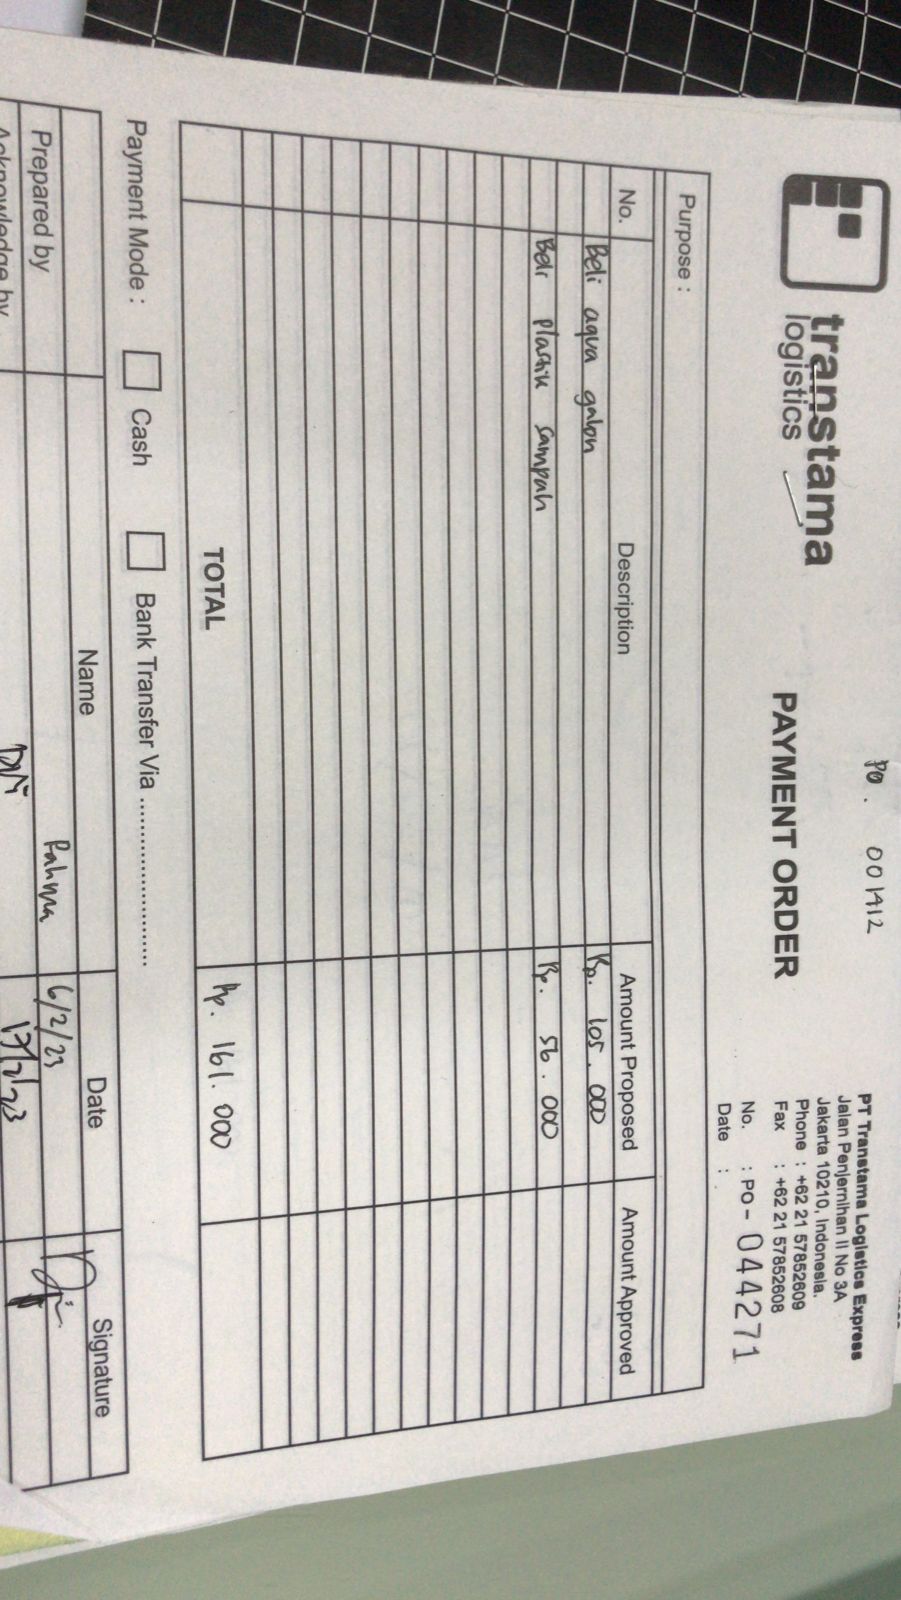 PO. 001412
transtama
logistics
PAYMENT ORDER
PT Transtama Logistics Express
Jalan Penjernihan II No 3A
Jakarta 10210, Indonesia.
Phone : +62 21 57852609
Fax : +62 21 57852608
No. : PO - 044271
Date :
Purpose :
No. Description Amount Proposed Amount Approved
Beli aqua galon Rp. 105.000
Beli plastik sampah Rp. 56.000
TOTAL Rp. 161.000
Payment Mode : Cash Bank Transfer Via ........................
Name Date Signature
Prepared by Rahma 6/2/23
Acknowledge by